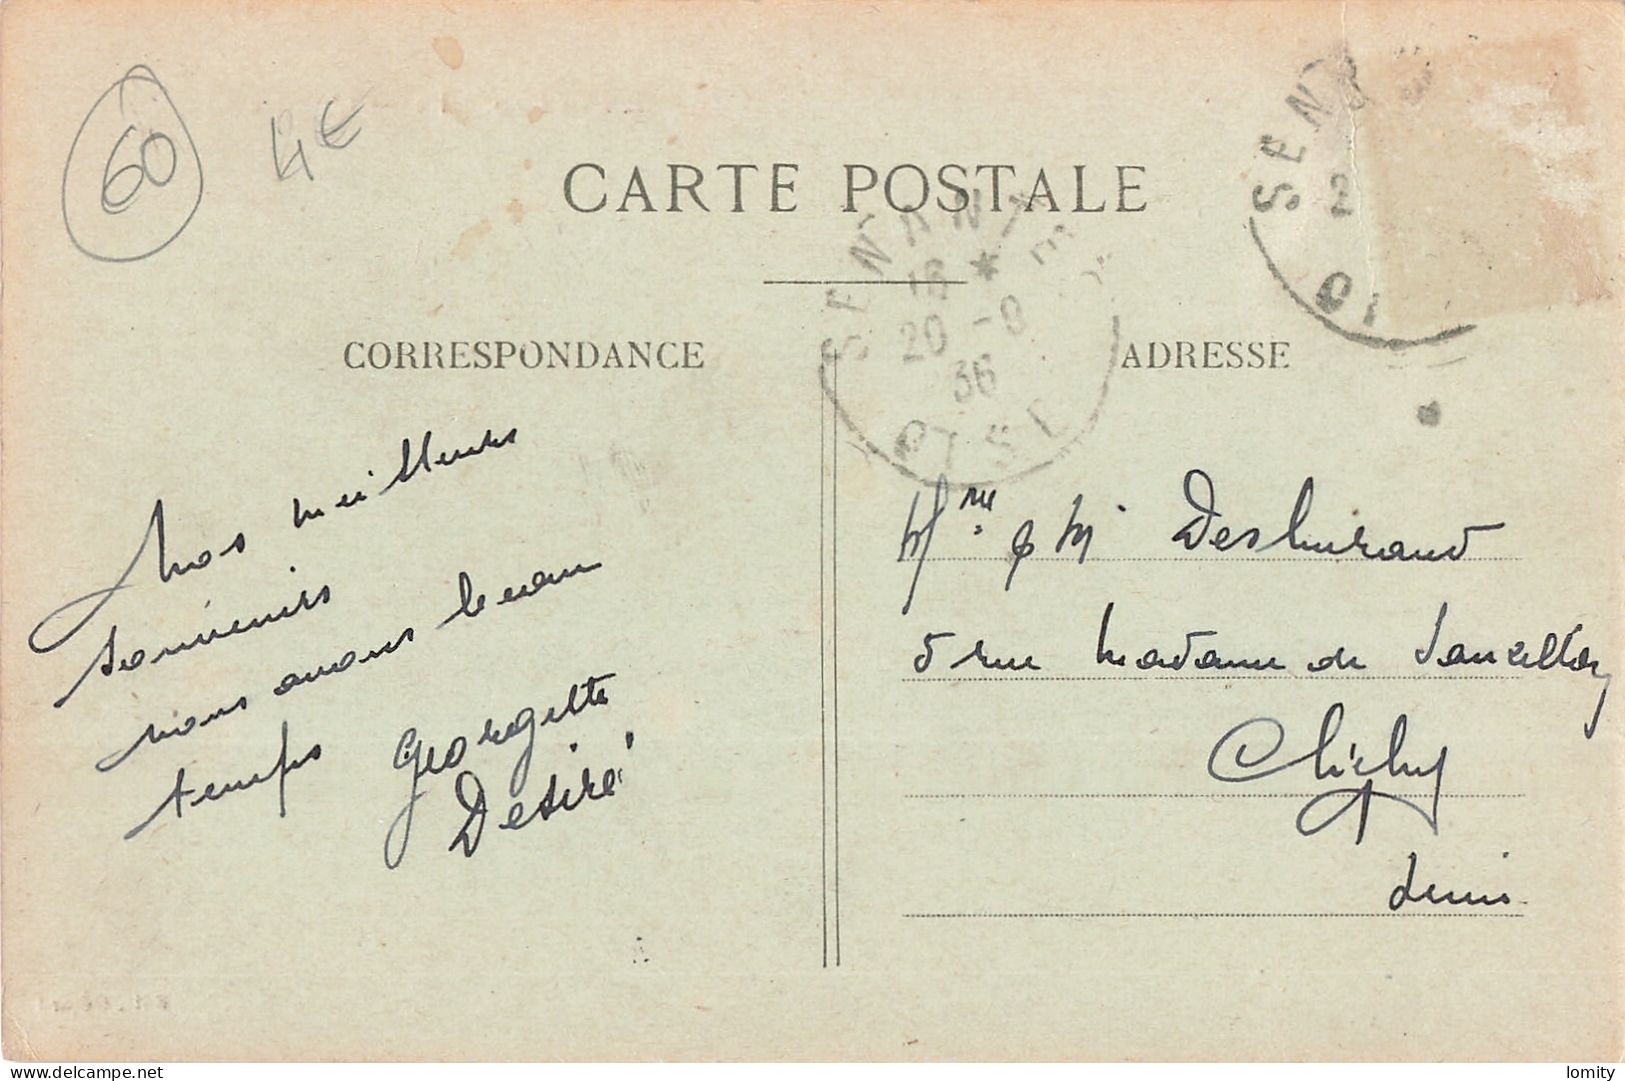 60
4€
CARTE POSTALE
SENANTES
18 *
20 -8
36
OISE
SEN
2
OI
CORRESPONDANCE
ADRESSE
nos meilleurs
souvenirs
nous avons beau
temps Georgette
Desiré
Mme & M
5 rue Madame de
Clichy
Seine
delcampe.net
lomity